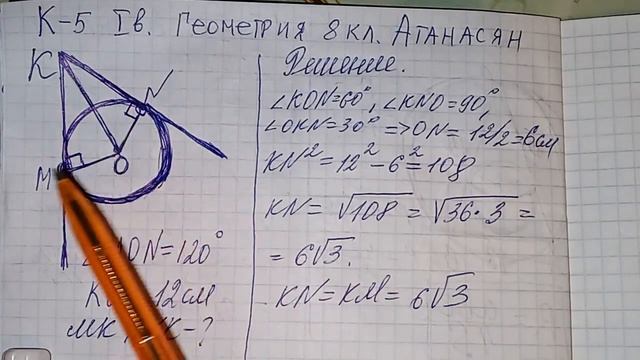 К-5 Iв. Геометрия 8кл. Атанасян
K
N
O
M
ON=120°
12см
МК -?
Решение.
∠KON=60°, ∠KNO=90°,
∠OKN=30° => ON= 12/2=6см
KN²=12²-6²=108
KN= √108 = √36·3 =
= 6√3.
KN=KM= 6√3